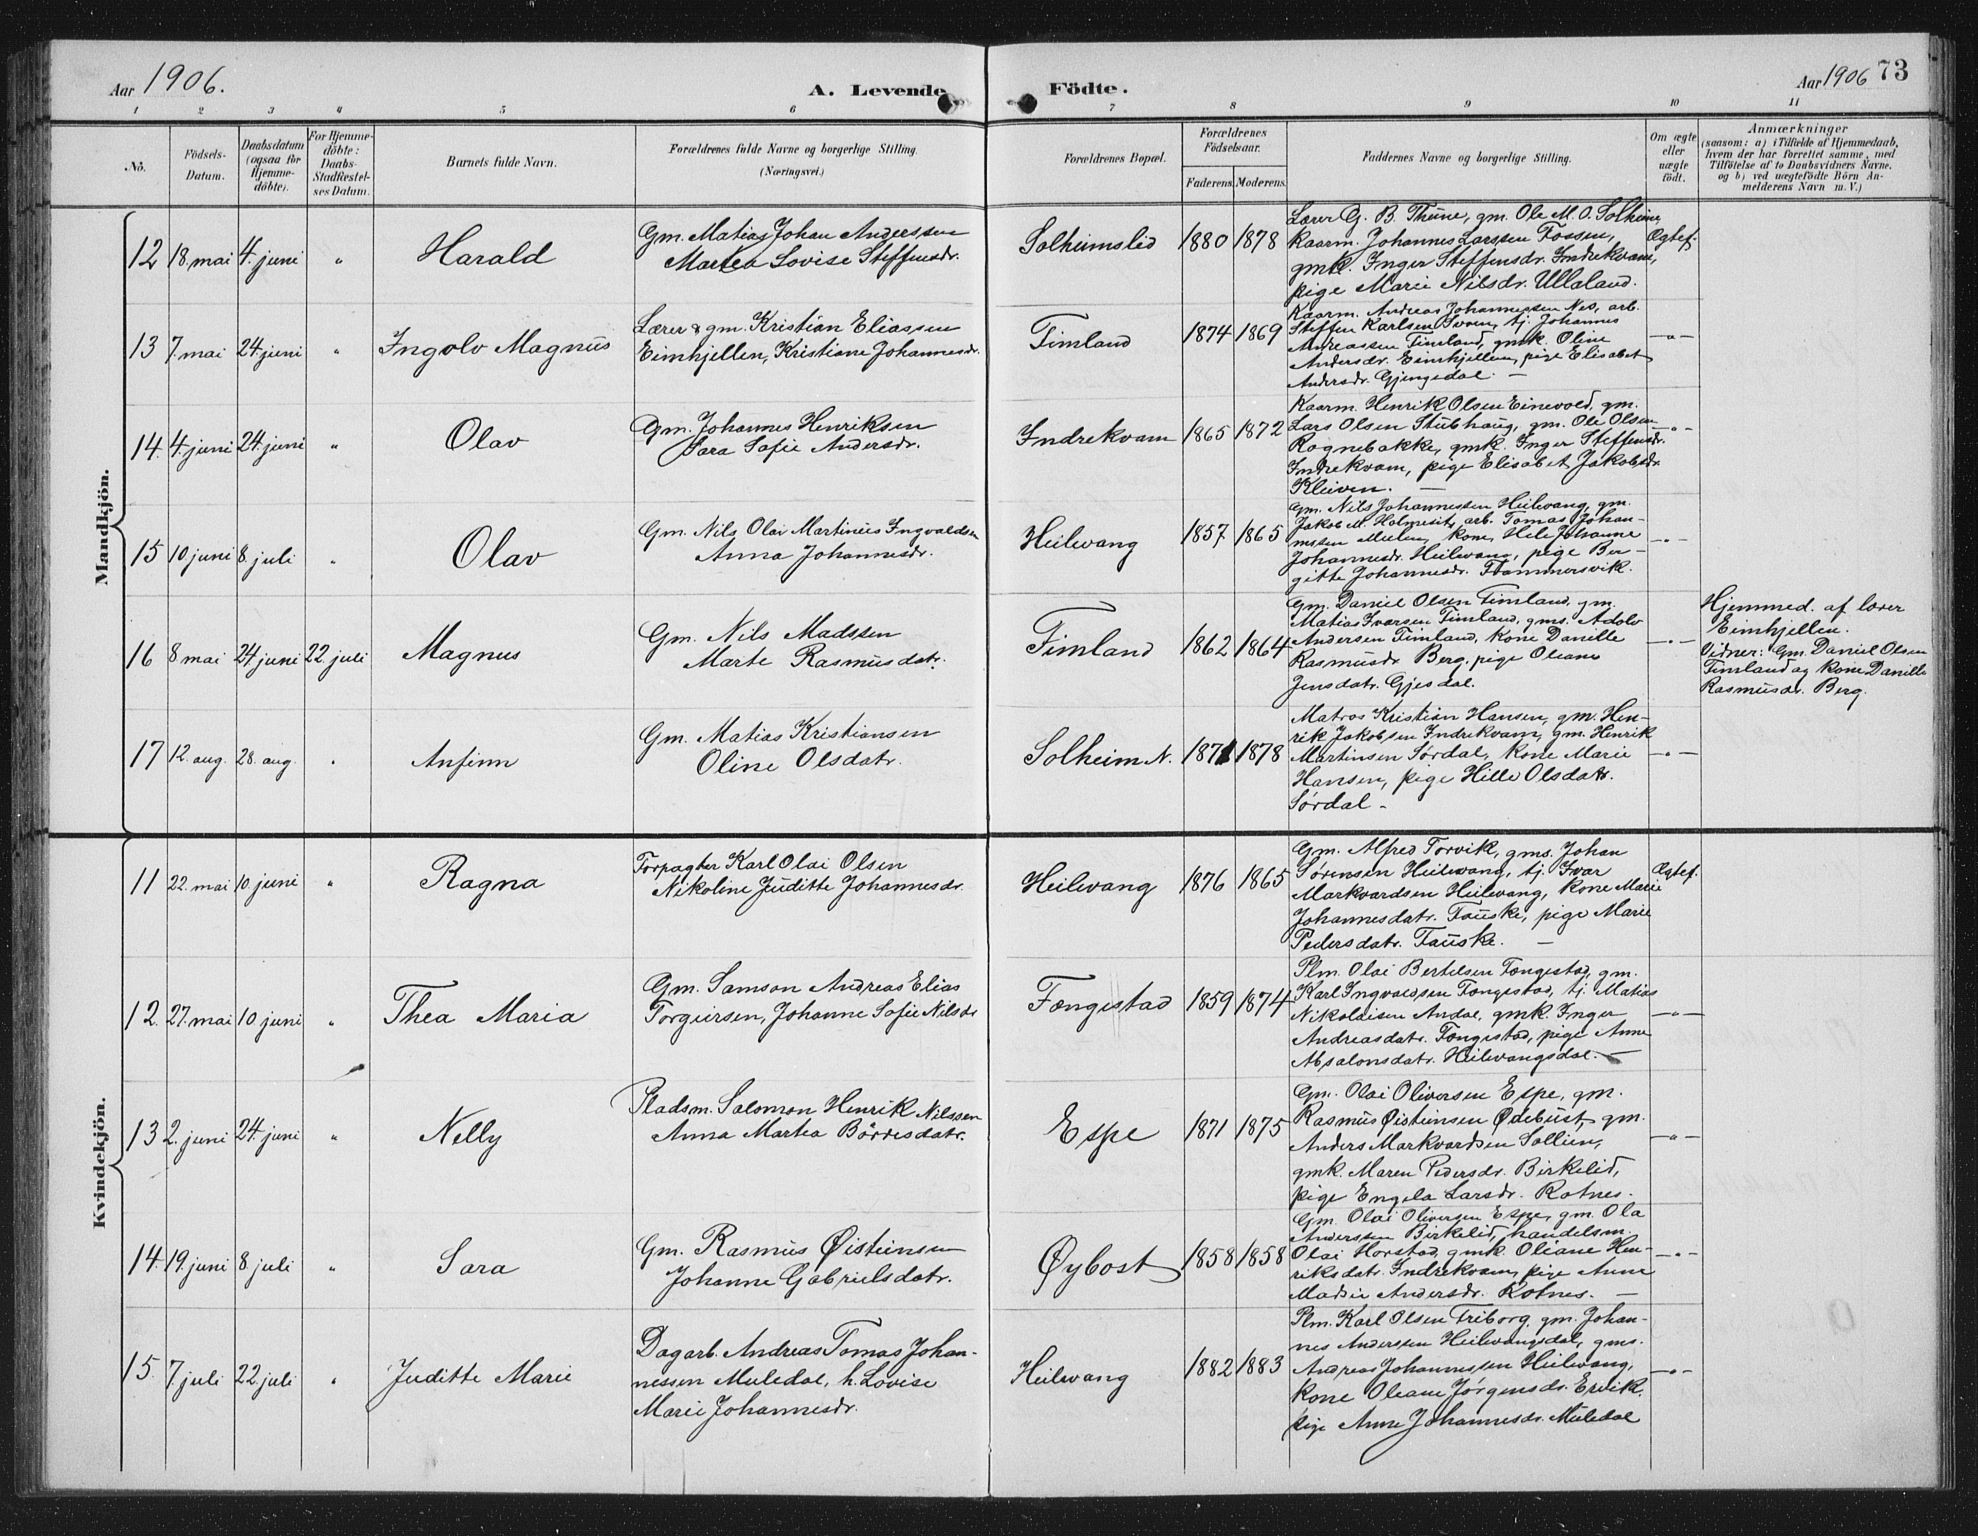 Aar 1906. A. Levende Födte. Aar 1906 73
1 2 3 4 5 6 7 8 9 10 11
No.
Födsels-
Datum.
Daabsdatum
(ogsaa for
Hjemme-
döbte).
For Hjemme-
döbte:
Daabs-
Stadfestel-
ses Datum.
Barnets fulde Navn.
Forældrenes fulde Navne og borgerlige Stilling.
(Næringsvei.)
Forældrenes Bopæl.
Forældrenes
Födselsaar.
Faderens. Moderens.
Faddernes Navne og borgerlige Stilling.
Om ægte
eller
uægte
födt.
Anmærkninger
(saasom: a) i Tilfælde af Hjemmedaab,
hvem der har forrettet samme, med
Tilföielse af to Daabsvidners Navne.
og b) ved uægtefödte Börn An-
melderens Navn m. V.)
Mandkjön.
12 18. mai 4. juni " Harald
Gm. Matias Johan Anderssen
Martea Lovise Steffensdr.
Solheimslid 1880 1878
Lærer G. B. Thune, gm. Ole M. O. Solheim,
Kaarm. Johannes Larssen Fossen,
gmk. Inger Steffensdr. Indrekvam,
pige Marie Nilsdr. Ullaland.
Ægtef.
13 7. mai 24. juni " Ingolv Magnus
Lærer & gm. Kristian Eliassen
Eimhjellen, Kristiane Johannesdr.
Timland 1874 1869
Kaarm. Andreas Johannessen Nes, arb.
Steffen Karlsen Svoen, tj. Johannes
Andreassen Timland, gmk. Oline
Andersdr. Eimhjellen, pige Elisabet
Andersdr. Gjengedal. —
—"—
14. 4. juni 24. juni " Olav
Gm. Johannes Henriksen
Sara Sofie Andersdr.
Indrekvam 1865 1872
Kaarm. Henrik Olsen Einevold, gm.
Lars Olsen Stubhaug, gm. Ole Olsen
Rognebakke, gmk. Inger Steffensdr.
Indrekvam, pige Elisabet Jakobsdr.
Kleiven. —
—"—
15 10 juni 8. juli " Olav
Gm. Nils Olai Martinius Ingvaldsen
Anna Johannesdr.
Heilevang 1857 1865
Gm. Nils Johannessen Heilevang, gm.
Jakob M. Holmeset, arb. Tomas Johan-
nessen Mulen, kone Hele Johanne
Johannesdr. Heilevang, pige Ber-
gitte Johannesdr. Flammersvik.
—"—
16 8 mai 24 juni 22. juli Magnus
Gm. Nils Madssen
Marte Rasmusdatr.
Timland 1862 1864
Gm. Daniel Olsen Timland, gm.
Matias Ivarsen Timland, gms. Adolv
Andersen Timland, kone Danille
Rasmusdr. Berg, pige Oliane
Jensdatr. Gjesdal.
—"—
Hjemmed. af lærer
Eimhjellen.
Vidner: Gm. Daniel Olsen
Timland og kone Danille
Rasmusdr. Berg.
17 12. aug. 28. aug. " Anfinn
Gm. Matias Kristiansen
Oline Olsdatr.
Solheim N. 1871 1878
Matros Kristian Hansen, gm. Hen-
rik Jakobsen Indrekvam, gm. Henrik
Martinsen Sørdal, kone Marie
Hansen, pige Hille Olsdatr.
Sørdal -
—"—
Kvindekjön.
11 22. mai 10. juni " Ragna
Forpagter Karl Olai Olsen
Nikoline Juditte Johannesdr.
Heilevang 1876 1865
Gm. Alfred Torvik, gms. Johan
Sørensen Heilevang, tj. Ivar
Markvardsen Heilevang, kone Marie
Johannesdatr. Fauske, pige Marie
Pedersdatr. Fauske. —
Ægtef.
12. 27. mai 10 juni " Thea Maria
Gm. Samson Andreas Elias
Torgersen, Johanne Sofie Nilsdr.
Fængestad 1859 1874
Plm. Olai Bertelsen Fængestad, gm.
Karl Ingvaldsen Fængestad, tj. Matias
Nikolaisen Andal, gmk. Inger
Andreasdatr. Fængestad, pige Anne
Absalonsdatr. Heilevangsdal. —
—"—
13 2. juni 24. juni " Nelly
Pladsm. Salomon Henrik Nilssen
Anna Martea Børresdatr.
Espe 1871 1875
Gm. Olai Oliversen Espe, gm.
Rasmus Øisteinsen Øebust, gm.
Anders Markvardsen Sollien,
gmk. Maren Pedersdr. Birkelid,
pige Engela Larsdr. Rotnes.
—"—
14. 19. juni 8. juli " Sara
Gm. Rasmus Øisteinsen
Johanne Gabrielsdatr.
Øybost 1858 1858
Gm. Olai Oliversen Espe, gm. Ola
Anderssen Birkelid, handelsm.
Olai Horstad, gmk. Oliane Hen-
riksdatr. Indrekvam, pige Anne
Madsie Andersdr. Rotnes. —
—"—
15. 7 juli 22. juli " Juditte Marie
Dagarb. Andreas Tomas Johan-
nessen Muledal, h. Lovise
Marie Johannesdr.
Heilevang 1882 1883
Plm. Karl Olsen Friborg, gm. Johan-
nes Anderssen Heilevangsdal, gms.
Andreas Johannessen Heilevang,
kone Oleane Jørgensdr. Ervik,
pige Anne Johannesdr. Muledal
—"—